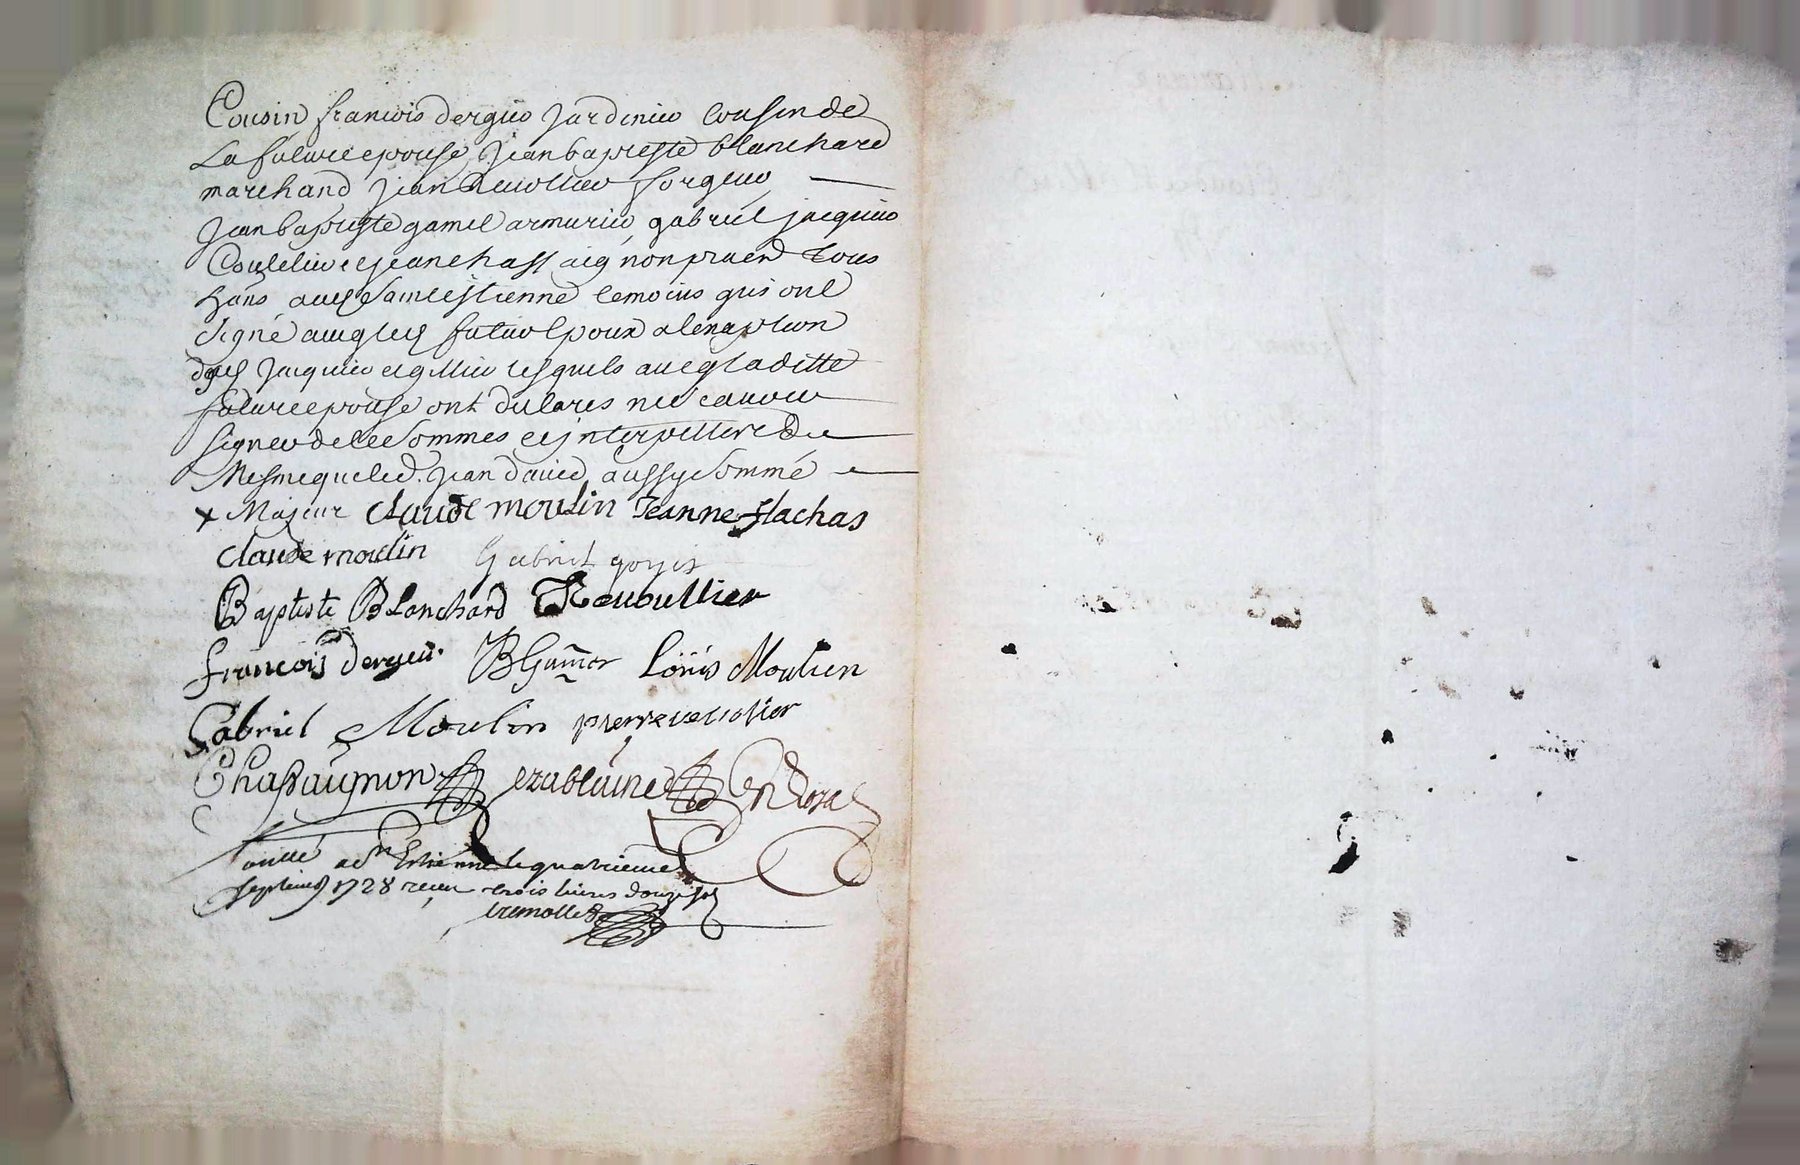 Cousin françois dergieu Jardinieu Cousin de
La future epouse, Jean baptiste blanchard
marchand Jean Revollieu forgeur,
Jean baptiste gamel armurieu, gabriel jacquieu
Coutelieu et jean chassaignon praend tous
hans aud Saint estienne temoins qui ont
Signé auecq led futur Epoux a lexception
desd Jacquieu et gollieu lesquels auecq laditte
future epouse ont declares ne scauoir
Signer de ce Sommes et jnterpelleres de
Mesme que led. Jean david aussy Sommé
x Majeur claude moulin Jeanne flachas
claude moulin Gabriel goyis
Baptiste Blanchard Revoullier
francois dergieu. B Gamer Louis Moulien
Gabriel Moulin pierre
Chassaignon
a St Estienne le quatrieme
septemb 1728 receu trois liures douze sol
tremollet